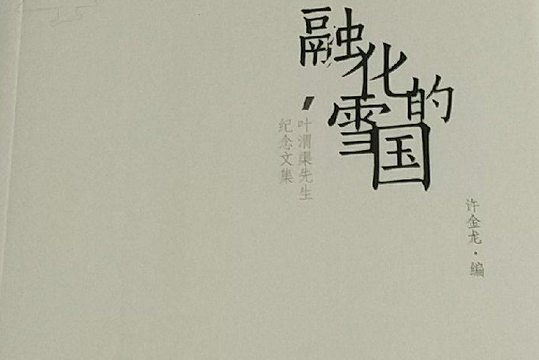 融化的
雪国
叶渭渠先生
纪念文集
许金龙·编